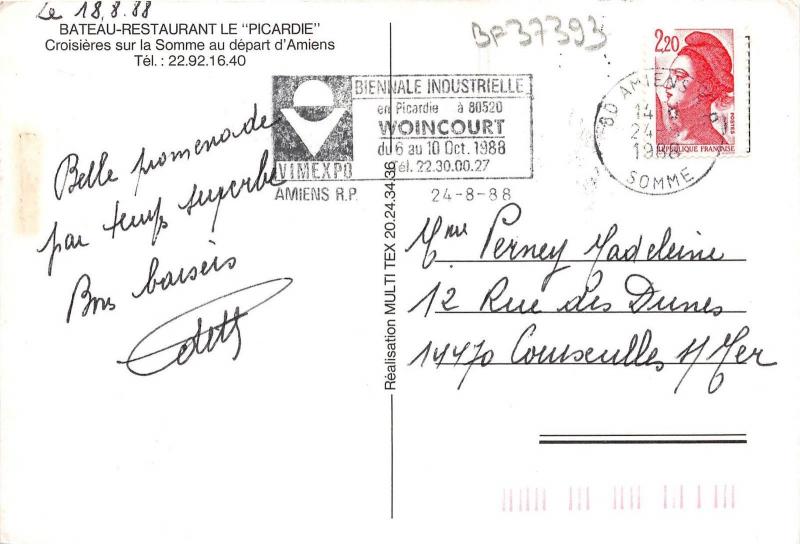 Le 18.8.88
BATEAU-RESTAURANT LE "PICARDIE"
Croisières sur la Somme au départ d'Amiens
Tél. : 22.92.16.40
BF37393
2,20
POSTES
REPUBLIQUE FRANÇAISE
80 AMIENS R.P.
14
24-8
1988
SOMME
BIENNALE INDUSTRIELLE
en Picardie à 80520
WOINCOURT
du 6 au 10 Oct. 1988
Tél. 22.30.00.27
VIMEXPO
AMIENS R.P.
24-8-88
Belle promenade
par temps superbe
Bons baisers
Edith
Réalisation MULTI TEX 20.24.34.36
Mme Perney Madeleine
12 Rue des Dunes
14470 Courseulles S/Mer